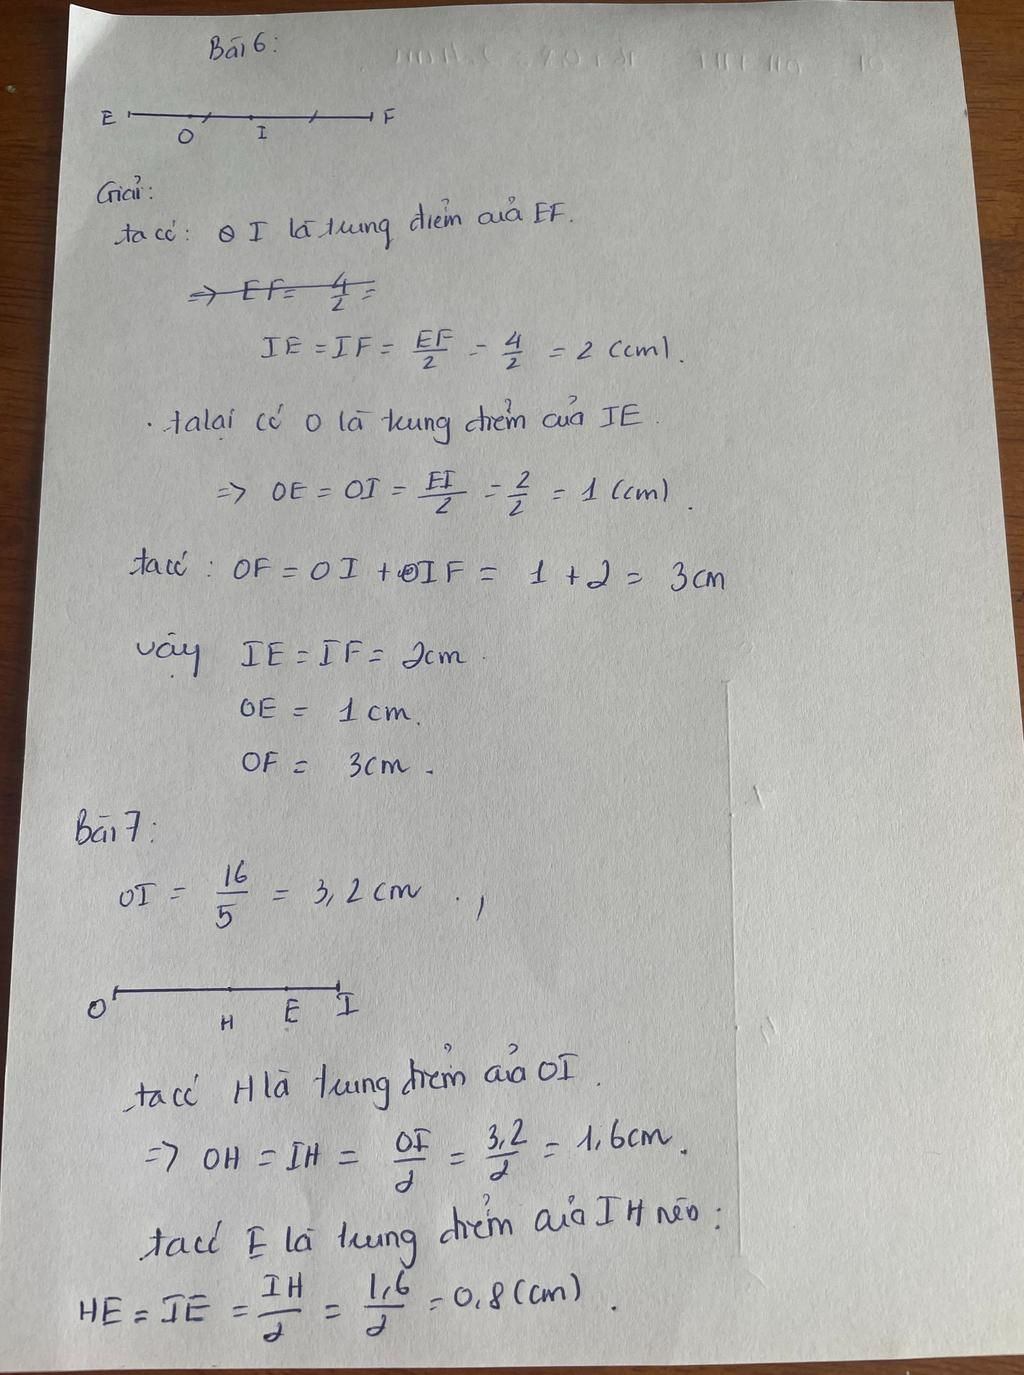 Bài 6:
E O I F
Giải:
ta có: I là trung điểm của EF.
=> EF = 4/2 =
IE = IF = EF/2 = 4/2 = 2 (cm).
. ta lại có O là trung điểm của IE.
=> OE = OI = EI/2 = 2/2 = 1 (cm).
ta có: OF = OI + IF = 1 + 2 = 3cm
vậy IE = IF = 2cm.
OE = 1cm.
OF = 3cm.
Bài 7:
OI = 16/5 = 3,2 cm.,
O H E I
ta có H là trung điểm của OI.
=> OH = IH = OI/2 = 3,2/2 = 1,6cm.
ta có E là trung điểm của IH nên:
HE = IE = IH/2 = 1,6/2 = 0,8 (cm).